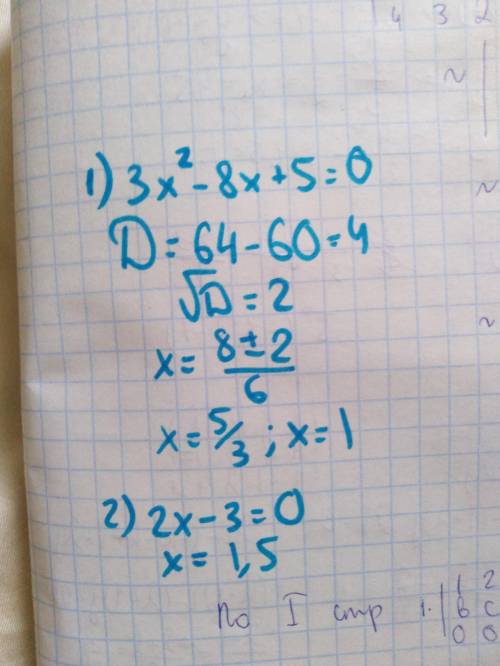 4 3 2
~
~
~
1) 3x² - 8x + 5 = 0
D = 64 - 60 = 4
√D = 2
x = (8 ± 2)/6
x = 5/3 ; x = 1
2) 2x - 3 = 0
x = 1,5
1 2
По I стр 1. | 6 c
0 0